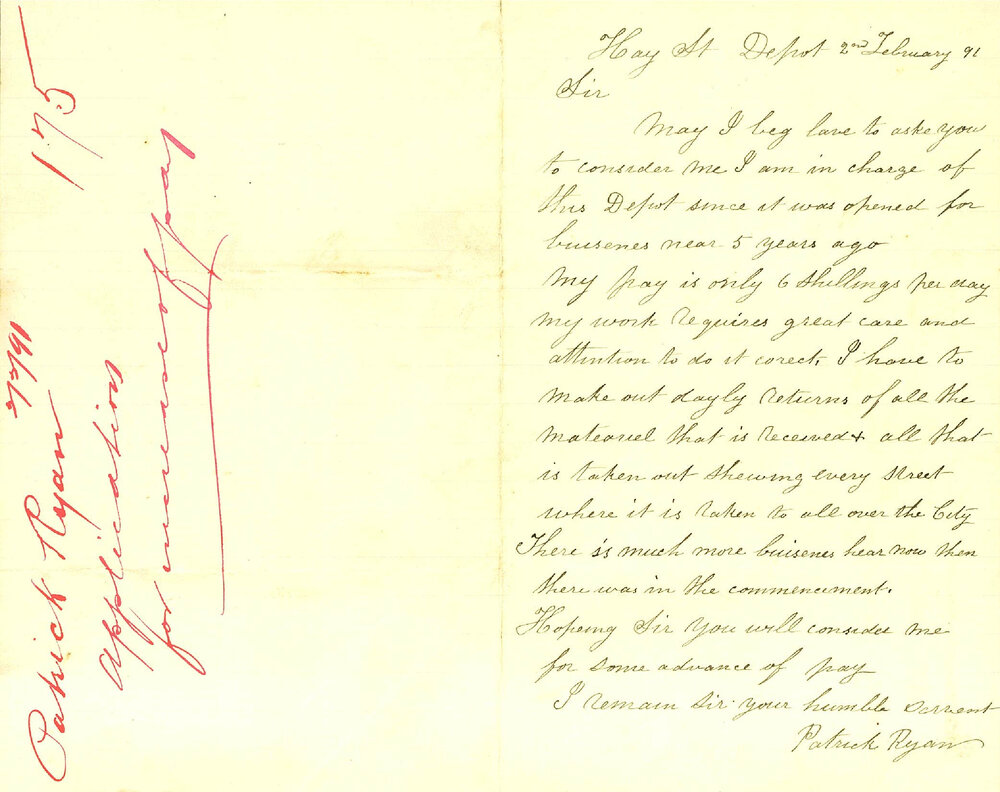 175
Patrick Ryan
Application
for increase of pay
Hay St Depot 2nd February 91
Sir
May I beg lave to aske you
to consider me I am in charge of
this Depot since it was opened for
buisenes near 5 years ago
My pay is only 6 shillings per day
my work requires great care and
attintion to do it corect, I have to
make out dayly returns of all the
matearel that is received & all that
is taken out shewing every street
where it is taken to all over the City
There is much more buisenes hear now then
there was in the commencement.
Hopeing Sir you will consider me
for some advance of pay
I remain Sir your humble servent
Patrick Ryan